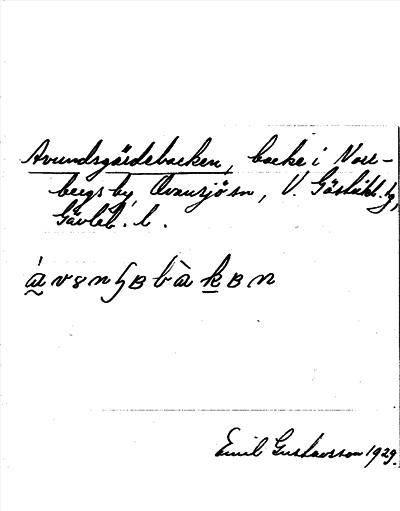 Avundsgärdsbacken, backe i Norr-
bergs by, Ovansjö sn, V. Gästrikl. tg,
Gävleb. l.
Emil Gustavsson 1929.